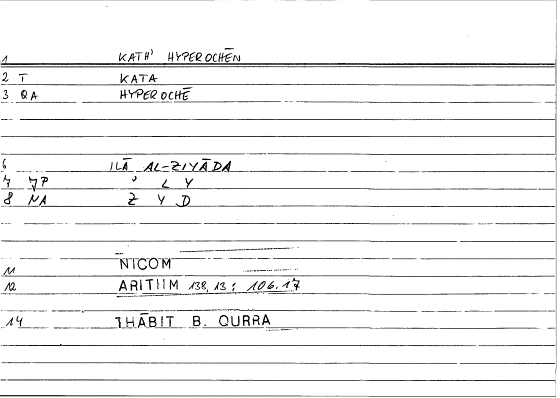 1 KATH' HYPEROCHĒN
2 T KATA
3 QA HYPEROCHĒ
6 ILĀ AL-ZIYĀDA
7 JP ' L Y
8 NA Z Y D
11 NICOM
12 ARITHM 138,13 ; 106.17
14 THĀBIT B. QURRA